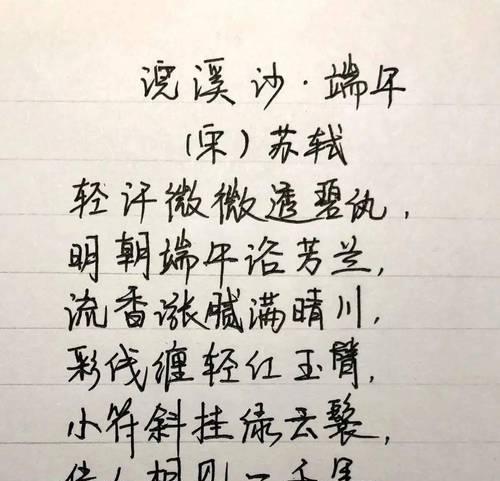 浣溪沙·端午
(宋)苏轼
轻汗微微透碧纨,
明朝端午浴芳兰,
流香涨腻满晴川,
彩线缠轻红玉臂,
小符斜挂绿云鬟,
佳人相见一千年